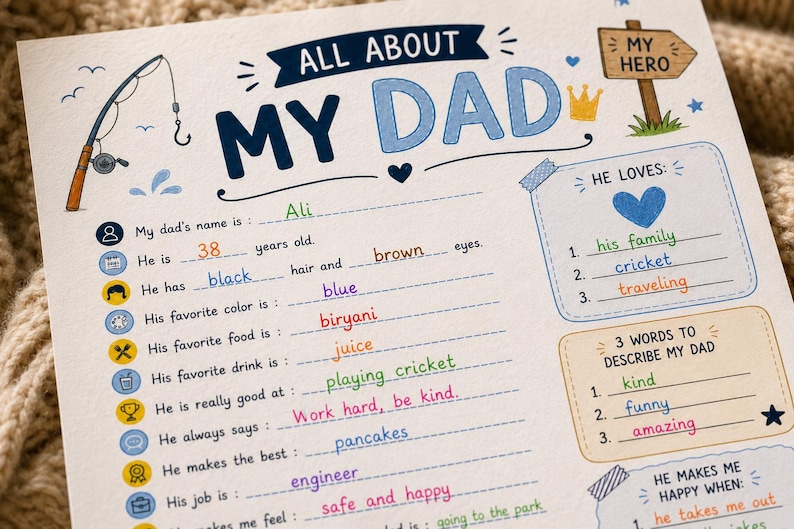 ALL ABOUT
MY DAD
MY
HERO
My dad's name is : Ali
He is 38 years old.
He has black hair and brown eyes.
His favorite color is : blue
His favorite food is : biryani
His favorite drink is : juice
He is really good at : playing cricket
He always says : Work hard, be kind.
He makes the best : pancakes
His job is : engineer
makes me feel : safe and happy
is : going to the park
HE LOVES:
1. his family
2. cricket
3. traveling
3 WORDS TO
DESCRIBE MY DAD
1. kind
2. funny
3. amazing
HE MAKES ME
HAPPY WHEN:
1. he takes me out